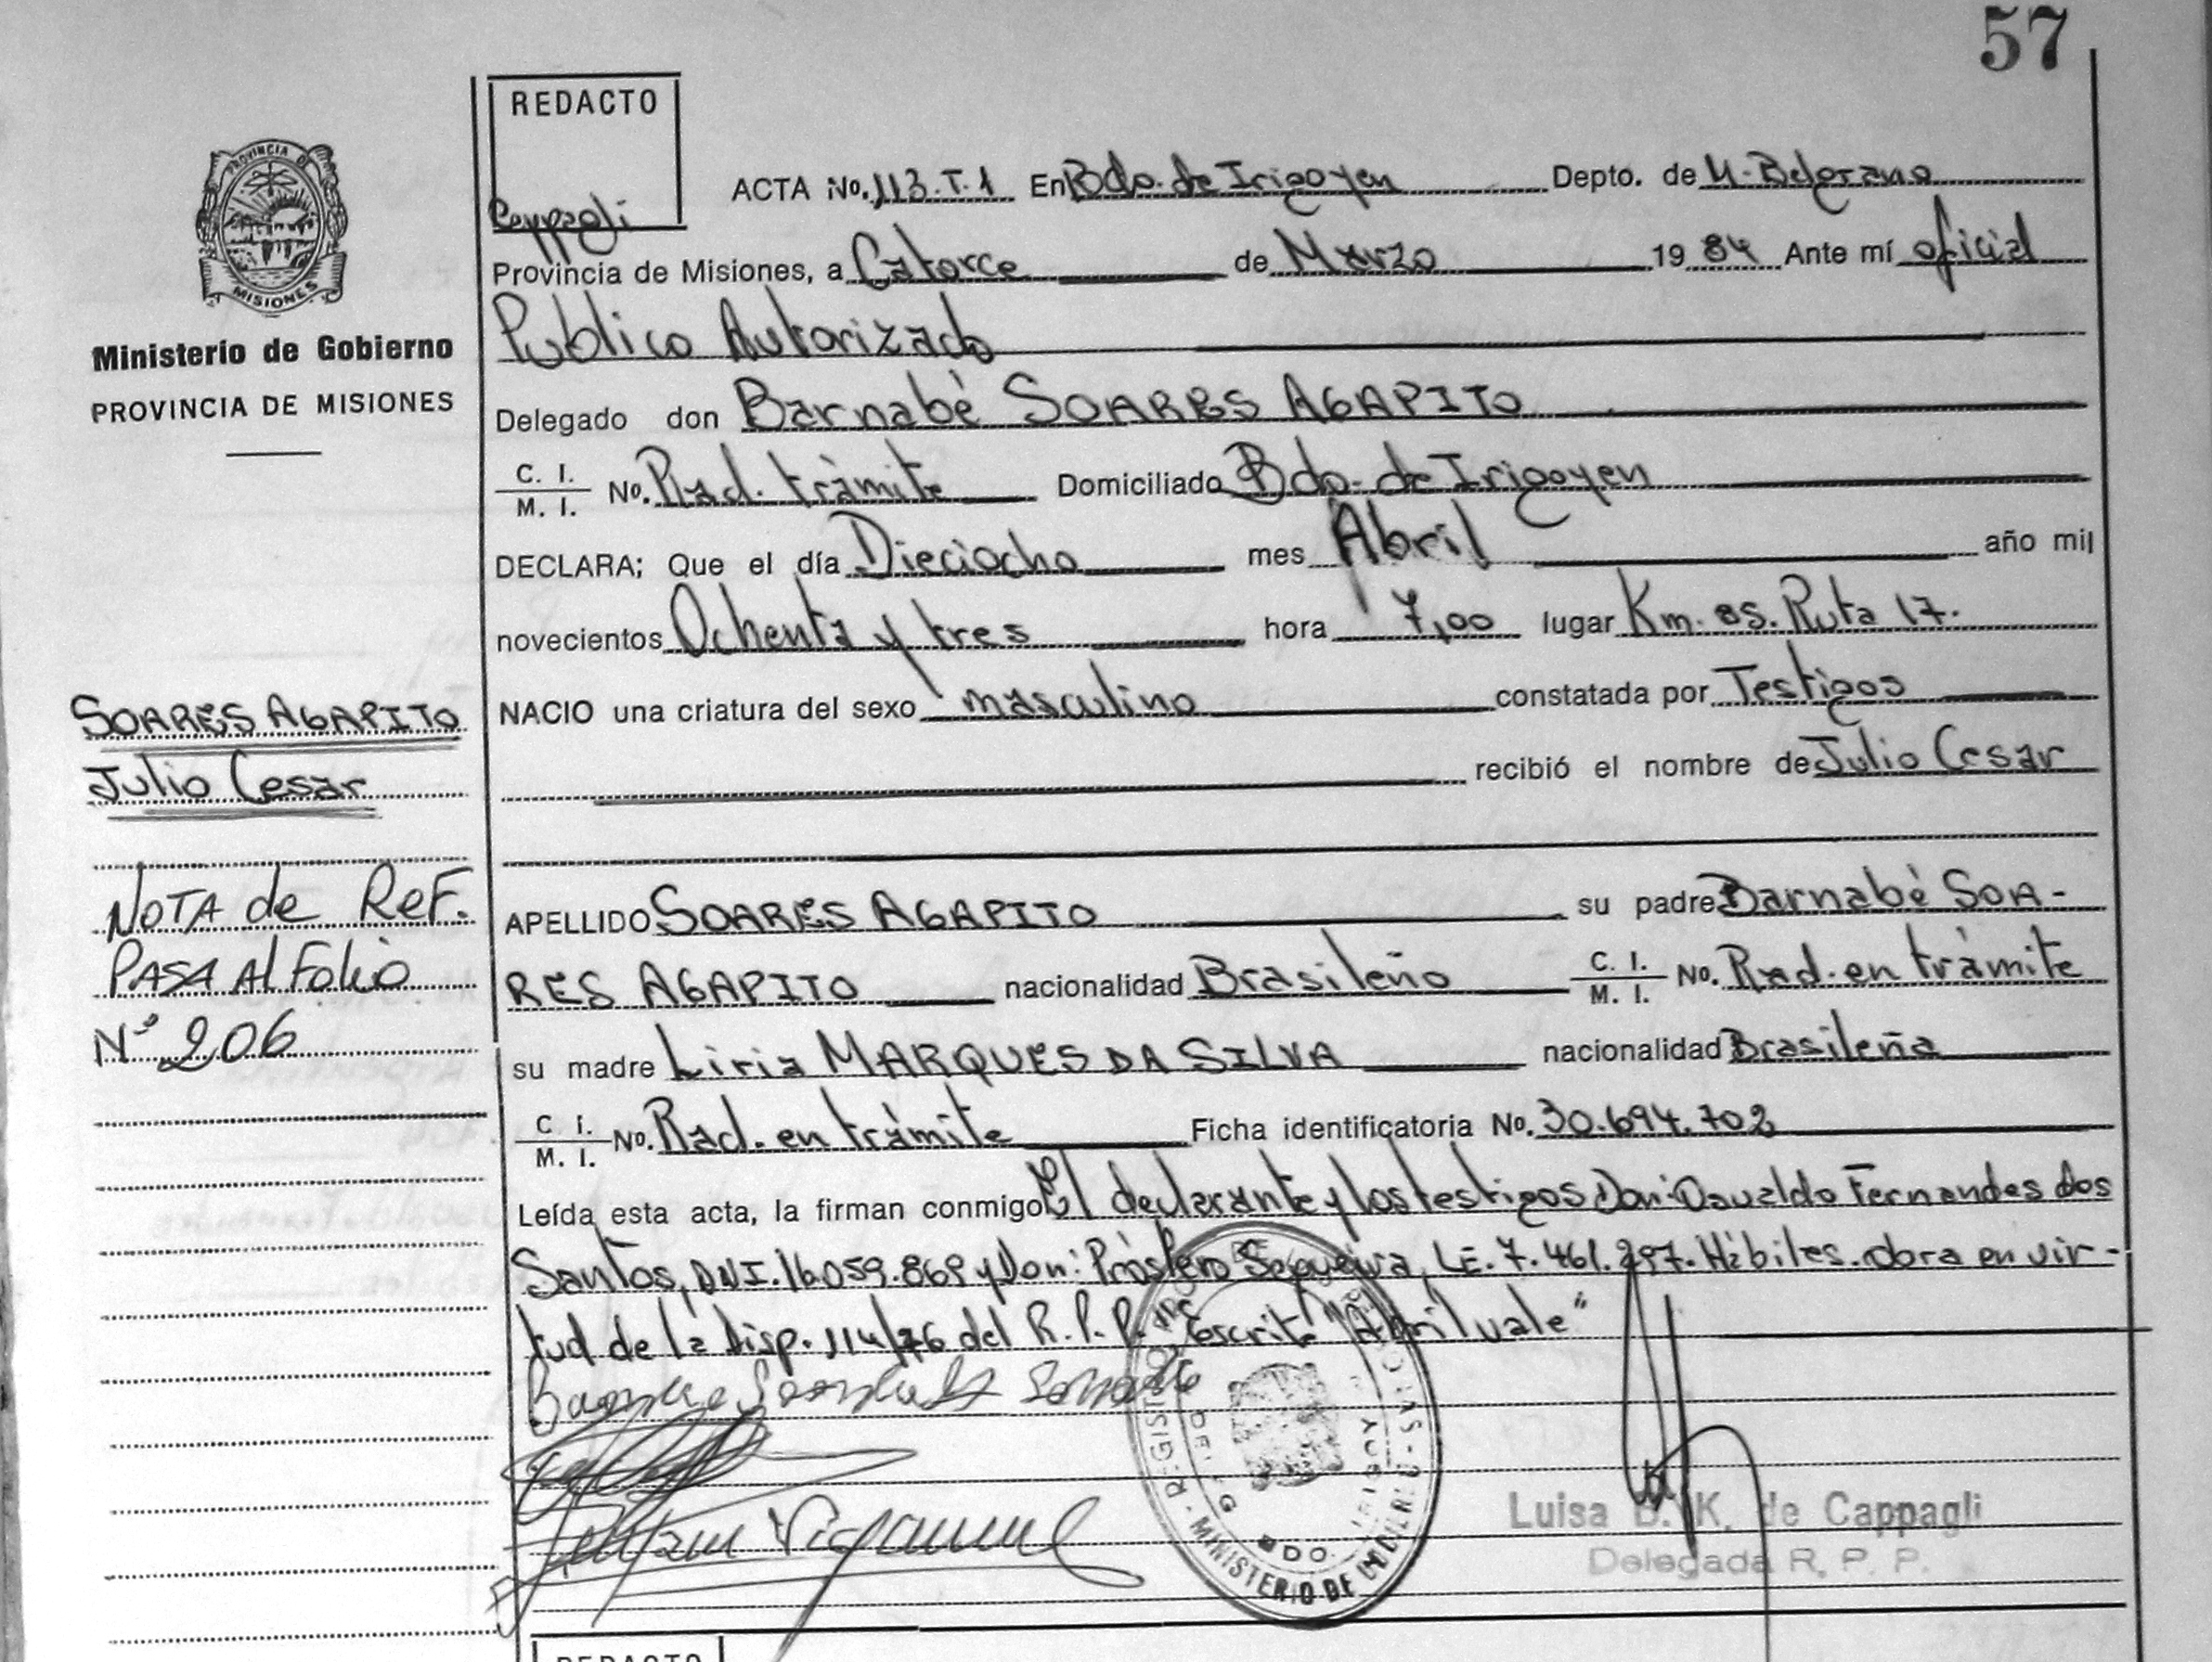 57
REDACTO
Cappagli
PROVINCIA DE
MISIONES
Ministerio de Gobierno
PROVINCIA DE MISIONES
ACTA No. 113.T.1 En Bdo. de Irigoyen Depto. de M. Belgrano
Provincia de Misiones, a Catorce de Marzo 19 84 Ante mí oficial
Publico Autorizado
Delegado don Barnabé SOARES AGAPITO
C. I. / M. I. No. Rad. trámite Domiciliado Bdo. de Irigoyen
DECLARA; Que el día Dieciocho mes Abril año mil
novecientos Ochenta y tres hora 7,00 lugar Km. 85. Ruta 17.
NACIO una criatura del sexo masculino constatada por Testigos
recibió el nombre de Julio Cesar
SOARES AGAPITO
Julio Cesar
NOTA de REF.
PASA Al Folio
N° 206
APELLIDO SOARES AGAPITO su padre Barnabé SOA-
RES AGAPITO nacionalidad Brasileño C. I. / M. I. No. Rad. en trámite
su madre Liria MARQUES DA SILVA nacionalidad Brasileña
C. I. / M. I. No. Rad. en trámite Ficha identificatoria No. 30.694.702
Leída esta acta, la firman conmigo El declarante y los testigos Don: Osvaldo Fernandes dos
Santos, DNI. 16.059.869 y Don: Sequeira, LE. 7.461.297. Hábiles. obra en vir-
tud de la Disp. 114/76 del R.P.P. "Abril vale"
MINISTERIO DE
BDO.
Luisa B. K. de Cappagli
Delegada R. P. P.
REDACTO